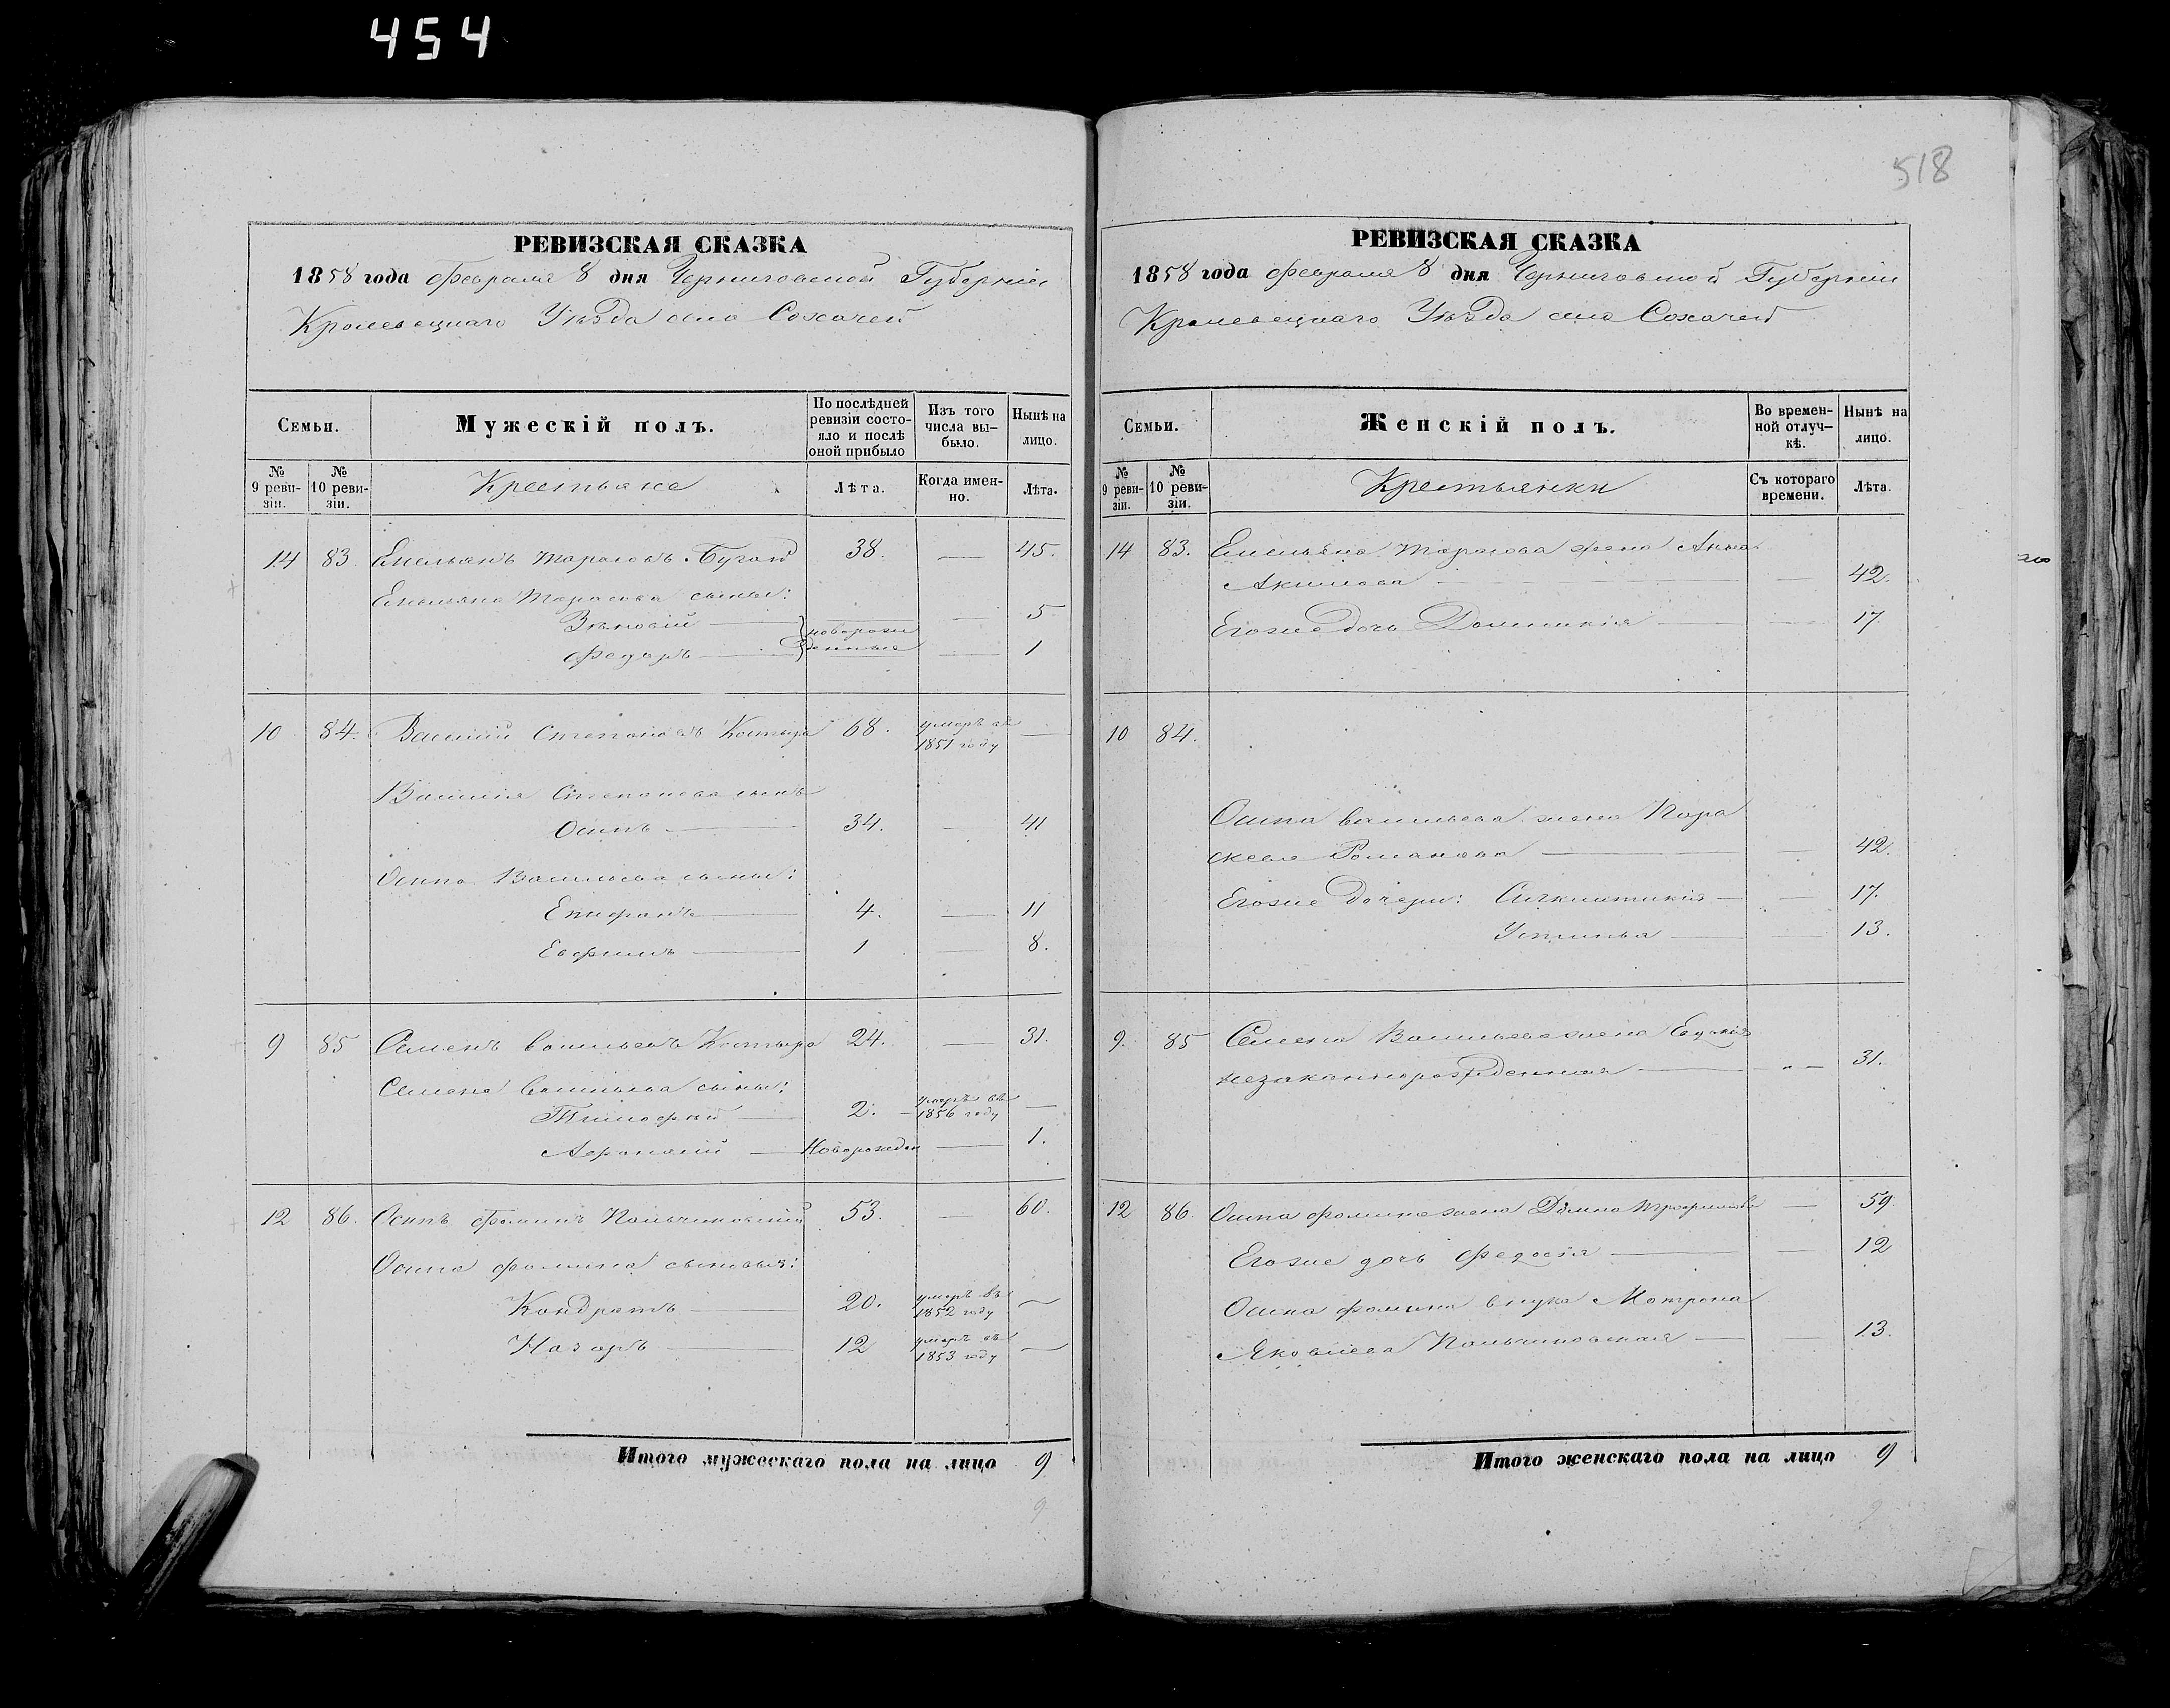 454
518
РЕВИЗСКАЯ СКАЗКА
1858 года Февраля 8 дня Черниговской Губерніи
Кролевецкаго Уѣзда село Сохачей
Семьи.
Мужескій полъ.
По послѣдней ревизіи состояло и послѣ оной прибыло
Изъ того числа выбыло.
Нынѣ на лицо.
№ 9 ревизіи.
№ 10 ревизіи.
Крестьяне
Лѣта.
Когда именно.
Лѣта.
14 83. Емельянъ Тарасовъ Бугай 38. — 45.
Емельяна Тарасова сыны:
Зѣновій — новорож — 5
Федоръ — денные — 1
10 84. Василій Степановъ Костыра 68. умеръ въ 1851 году —
Василія Степанова сынъ
Осипъ — 34. — 41
Осипа Васильева сыны:
Епифанъ — 4. — 11
Евфимъ — 1 — 8.
9 85 Семенъ Васильевъ Костыра 24. — 31.
Семена Васильева сыны:
Тимофей — 2. — умеръ въ 1856 году —
Афанасій — Новорожден — 1.
12 86. Осипъ Фоминъ 53. — 60.
Осипа Фомина сыновья:
Кондратъ — 20. умеръ въ 1852 году —
Назаръ — 12 умеръ въ 1853 году —
Итого мужескаго пола на лицо 9
9
РЕВИЗСКАЯ СКАЗКА
1858 года Февраля 8 дня Черниговской Губерніи
Кролевецкаго Уѣзда село Сохачей
Семьи.
Женскій полъ.
Во временной отлучкѣ.
Нынѣ на лицо.
№ 9 ревизіи.
№ 10 ревизіи.
Крестьянки
Съ котораго времени.
Лѣта.
14 83. Емельяна Тарасова жена Анна
Акимова — — 42.
Егоже дочь Домникія — — 17.
10 84.
Осипа Васильева жена Пара
скева Романова — — 42.
Егоже дочери: — — 17.
Устинья — — 13.
9. 85 Семена Васильева жена Евдокія
незаконнорожденная — „ — 31.
12 86. Осипа Фомина жена Домна Трофимова — 59.
Егоже дочь Федосія — — 12
Осипа Фомина внука Мотрона
Яковлева — — 13.
Итого женскаго пола на лицо 9
9